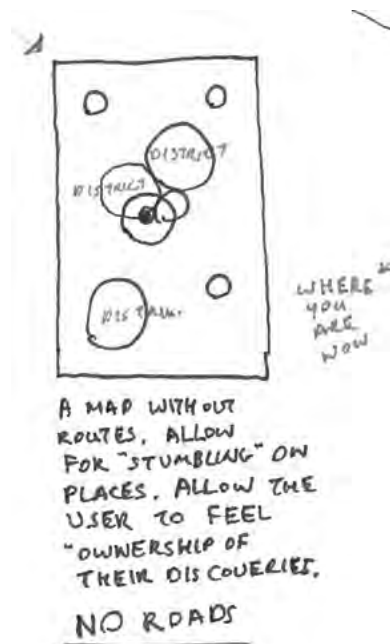 DISTRICT
DISTRICT
DISTRICT
WHERE
YOU
ARE
NOW
A MAP WITHOUT
ROUTES. ALLOW
FOR "STUMBLING" ON
PLACES. ALLOW THE
USER TO FEEL
"OWNERSHIP OF
THEIR DISCOVERIES.
NO ROADS